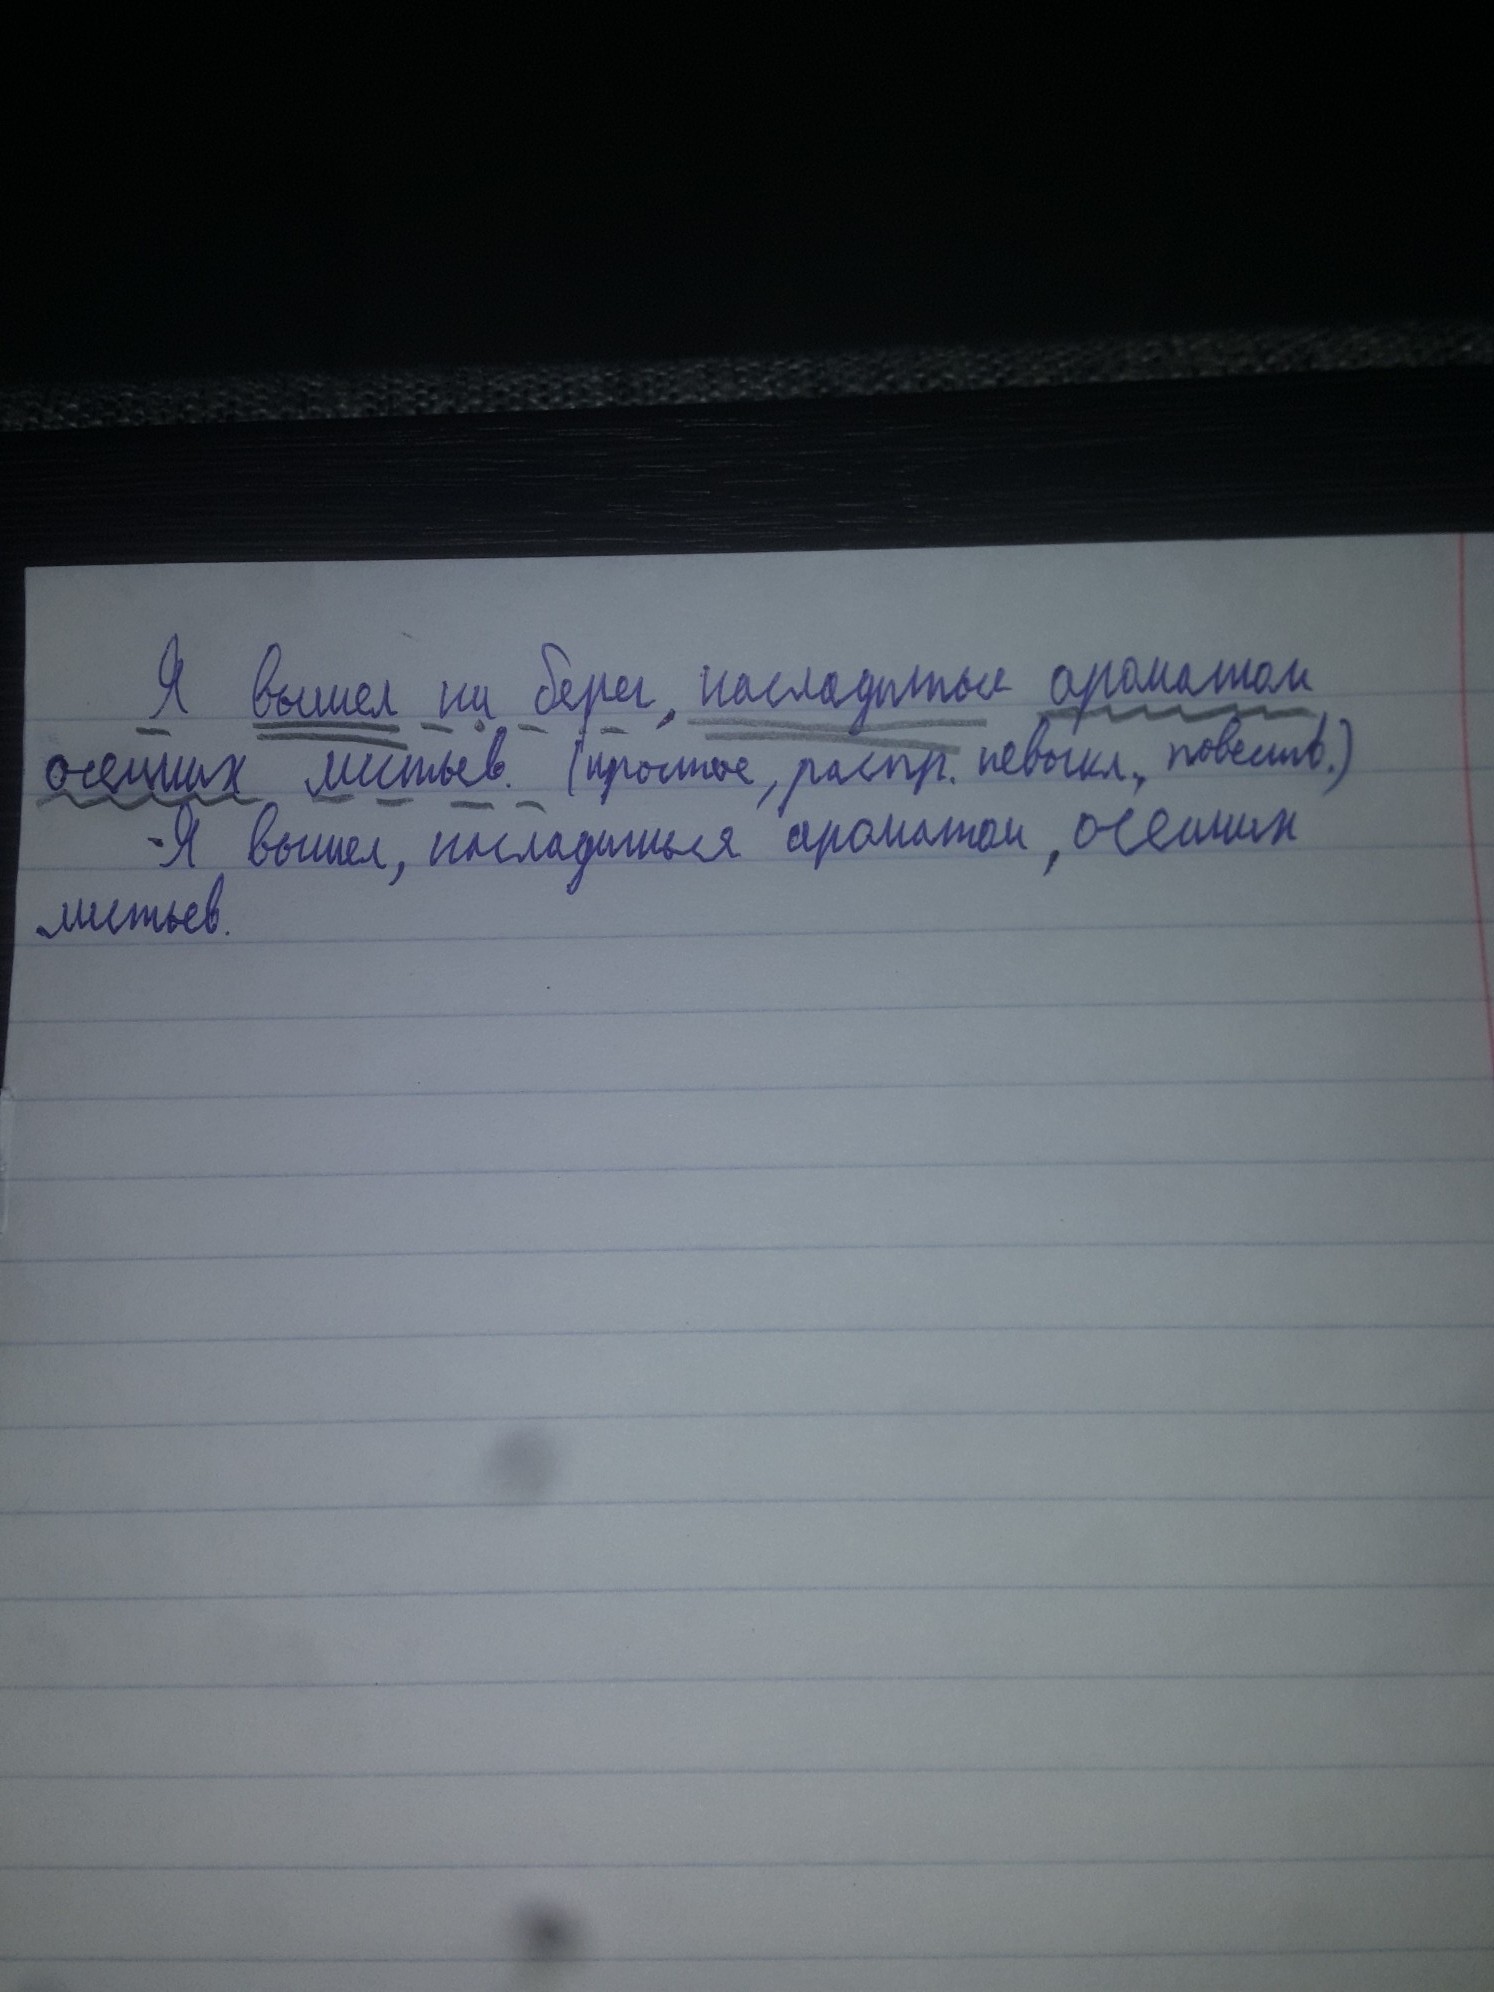 Я вышел на берег, насладиться ароматом
осенних листьев. (простое, распр. невоскл., повеств.)
-Я вышел, насладиться ароматом, осенних
листьев.